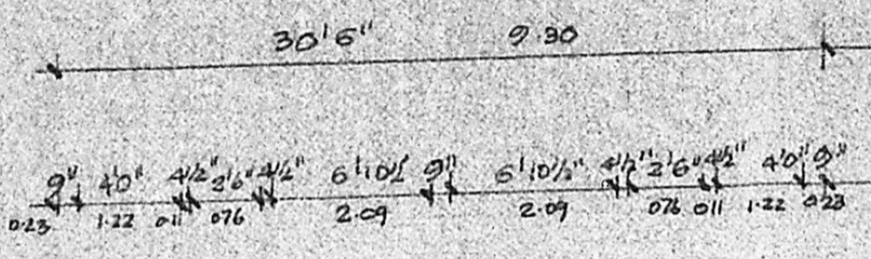 30'6" 9.30
9" 4'0" 4½" 2'6" 4½" 6'10½ 9" 6'10½" 4½" 2'6" 4½" 4'0" 9"
0.23 1.22 0.11 076 2.09 2.09 076 011 1.22 0.23